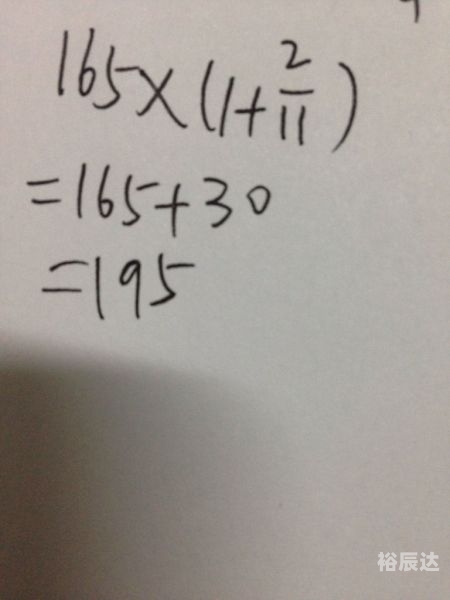 165×(1+2/11)
=165+30
=195
裕辰达